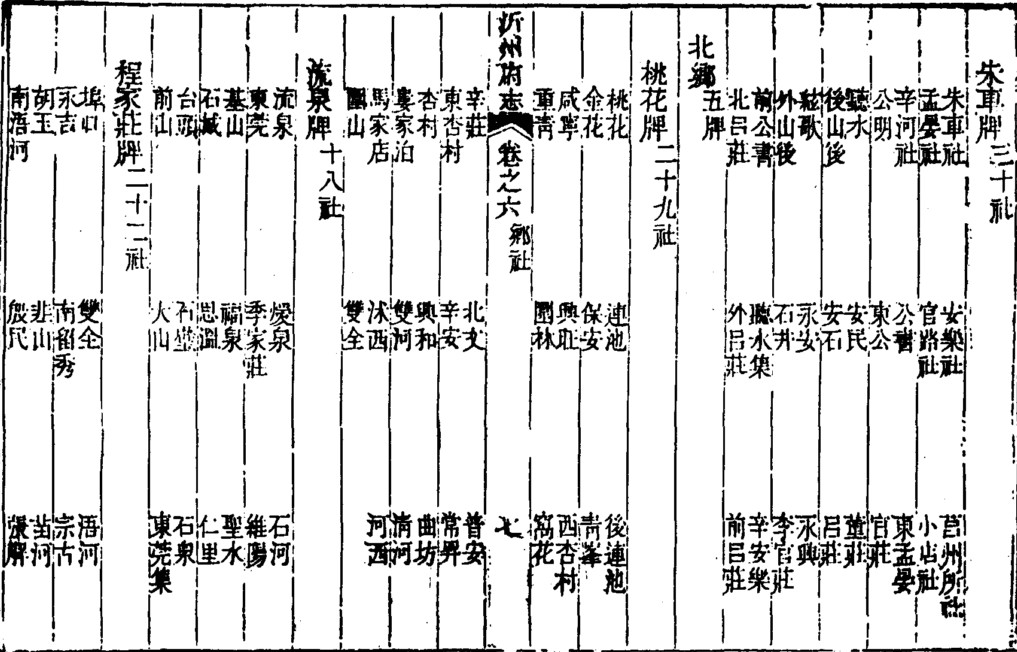 朱車牌三十社
朱車社 安樂社 莒州所社
孟晏社 官路社 小店社
辛河社 公書 東孟晏
公明 東公 官莊
聽水 安民 董莊
後山後 安石 呂莊
聡歌 永安 永興
外山後 石井 李官莊
前公書 聽水集 辛安樂
北呂莊 外呂莊 前呂莊
北鄉五牌
桃花牌二十九社
桃花 連池 後連池
金花 保安 青峯
咸寧 興旺 西杏村
重靑 園林 窩花
沂州府志 卷之六 鄉社 七
辛莊 北文 普安
東杏村 辛安 常昇
杏村 興和 曲坊
婁家泊 雙河 淸河
馬家店 沭西 河西
圈山 雙全
流泉牌十八社
流泉 煖泉 石河
東莞 季家莊 維陽
基山 福泉 聖水
石城 思溫 仁里
台頭 石壁 石泉
前山 大山 東莞集
程家莊牌二十二社
埠口 雙全 浯河
永吉 南留秀 宗古
胡玉 悲山 苗河
南浯河 殷民 張解